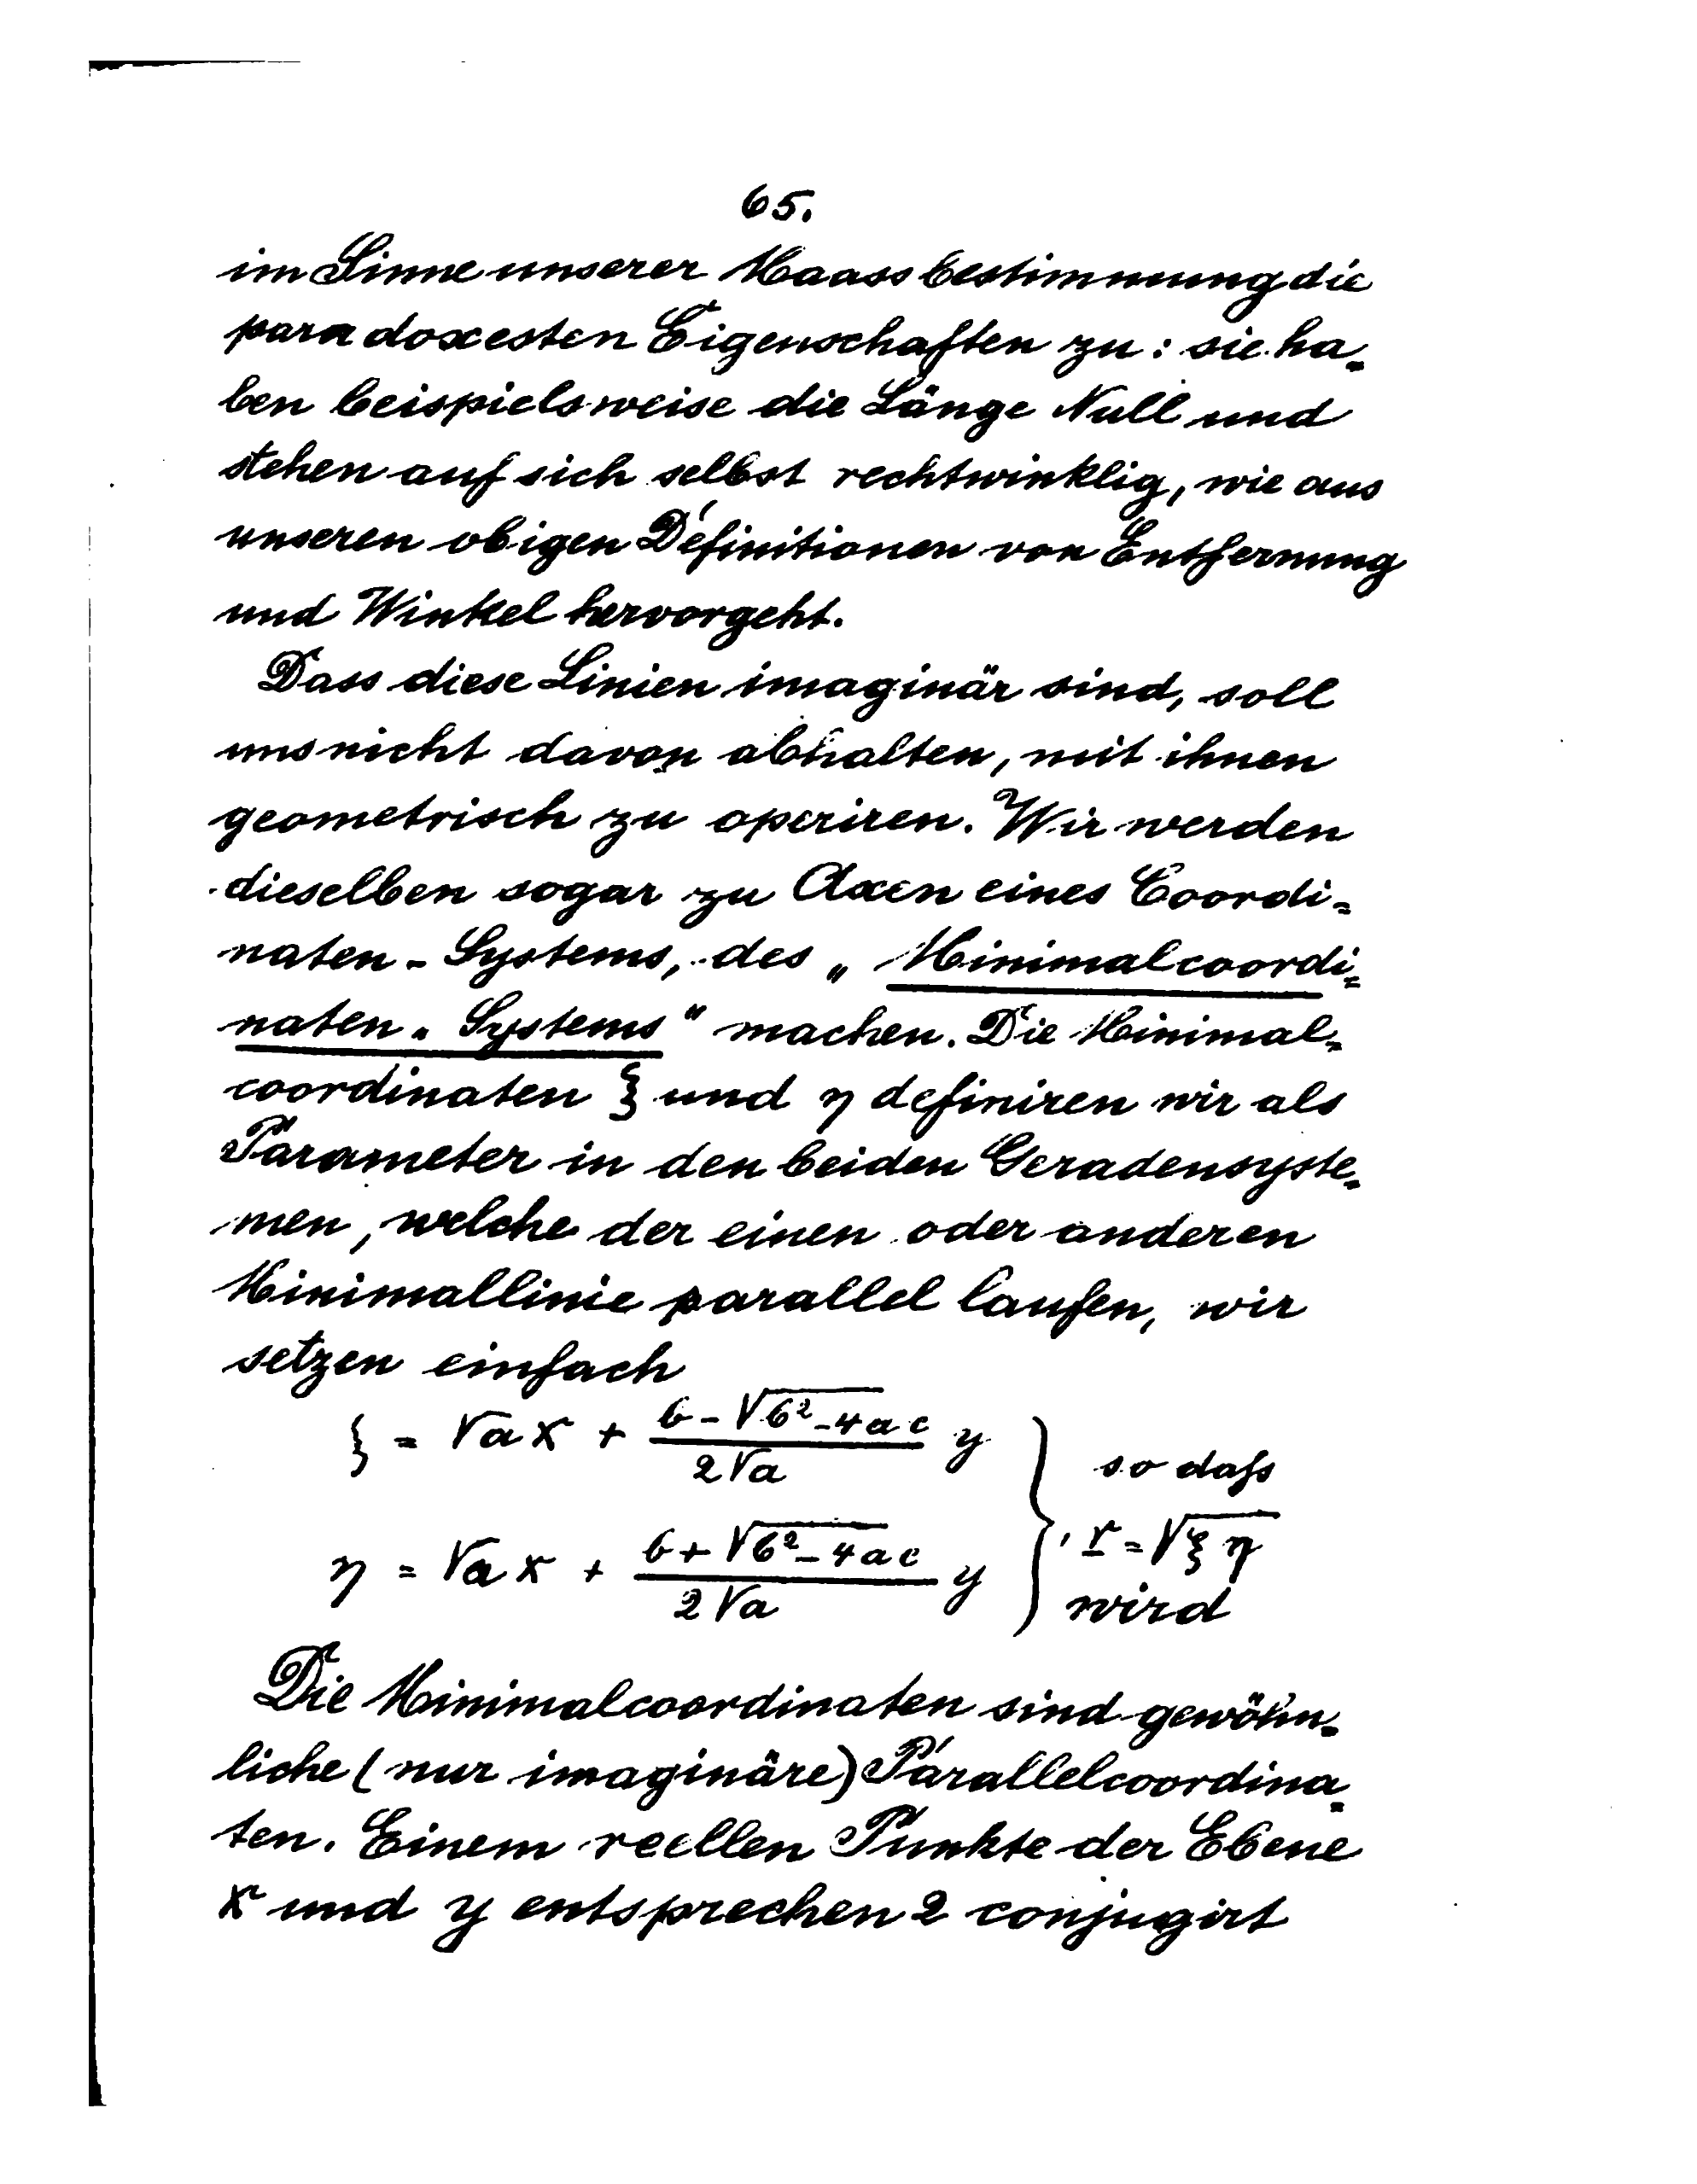 65.
im Sinne unserer Maassbestimmung die
paradoxesten Eigenschaften zu: sie ha-
ben beispielsweise die Länge Null und
stehen auf sich selbst rechtwinklig, wie aus
unseren obigen Definitionen von Entfernung
und Winkel hervorgeht.
Dass diese Linien imaginär sind, soll
uns nicht davon abhalten, mit ihnen
geometrisch zu operiren. Wir werden
dieselben sogar zu Axen eines Coordi-
naten-Systems, des „Minimalcoordi-
naten-Systems" machen. Die Minimal-
coordinaten ξ und η definiren wir als
Parameter in den beiden Geradensyste-
men, welche der einen oder anderen
Minimallinie parallel laufen, wir
setzen einfach
ξ = √a x + (b - √(b² - 4ac))/(2√a) y
so daſs
η = √a x + (b + √(b² - 4ac))/(2√a) y
, r = √(ξ η)
wird
Die Minimalcoordinaten sind gewöhn-
liche (nur imaginäre) Parallelcoordina-
ten. Einem reellen Punkte der Ebene
x und y entsprechen 2 conjugirt